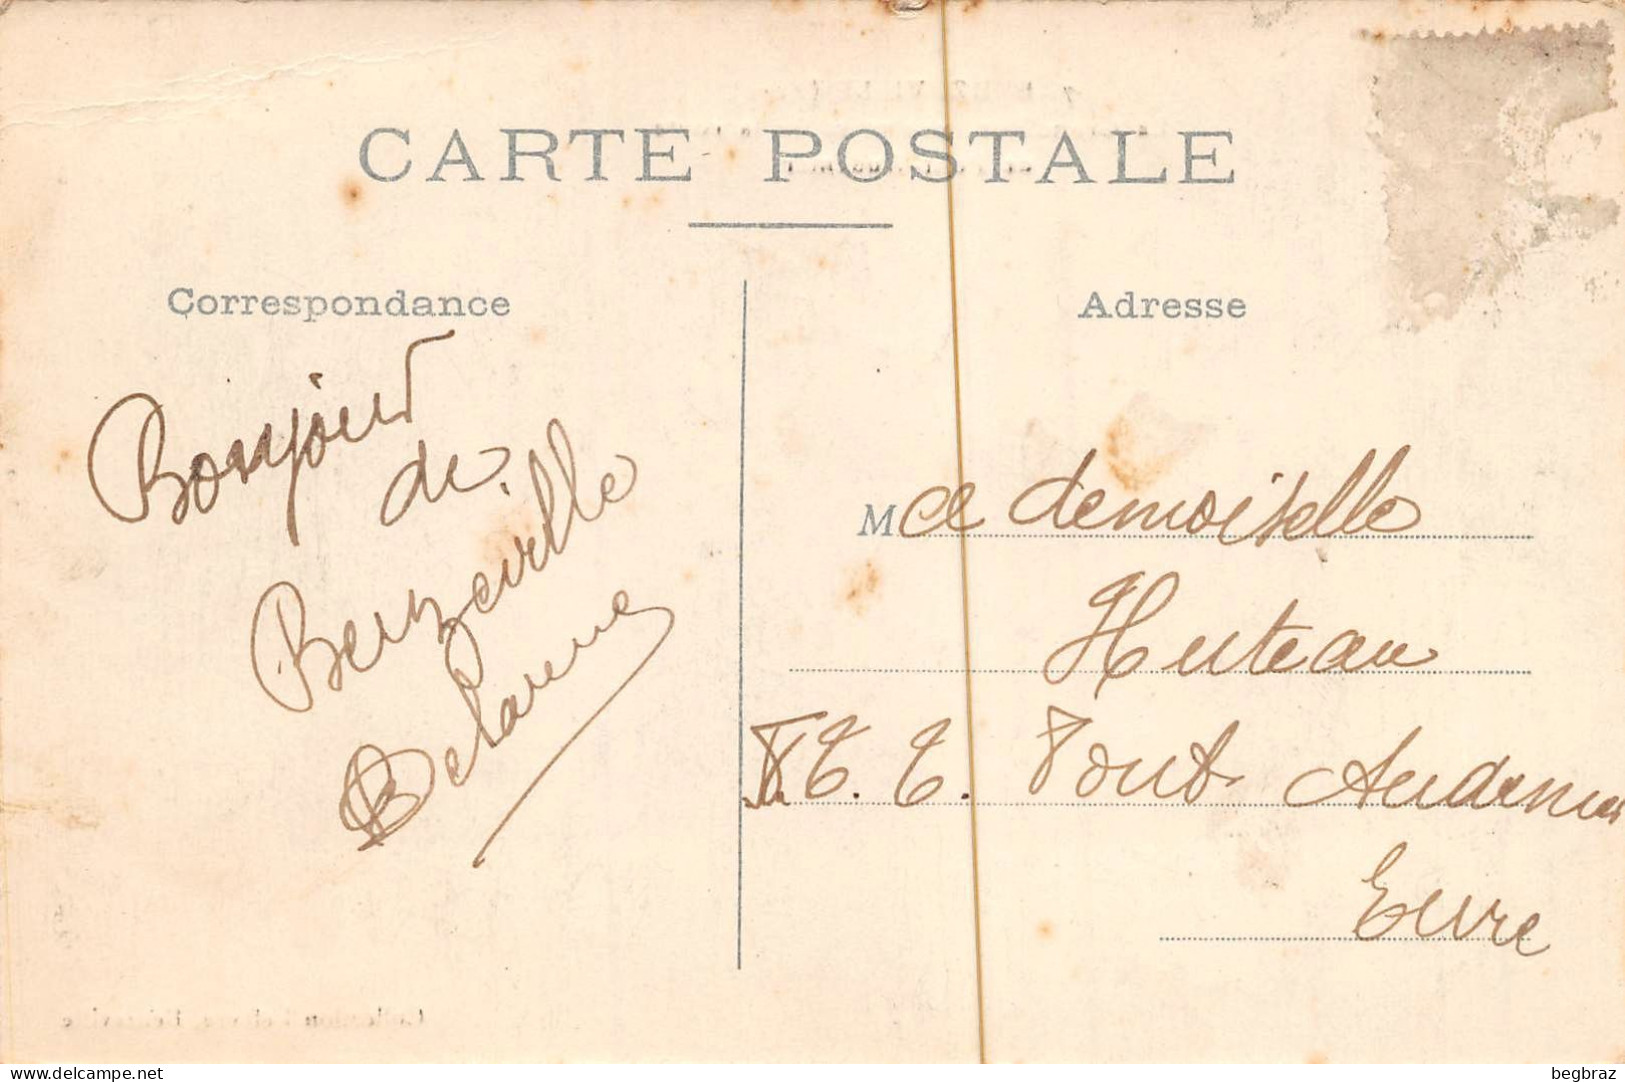 CARTE POSTALE
Correspondance
Adresse
Bonjour
de
Beuzeville
Delarue
Mademoiselle
Huteau
P.T.T. Pont Audemer
Eure
delcampe.net
begbraz